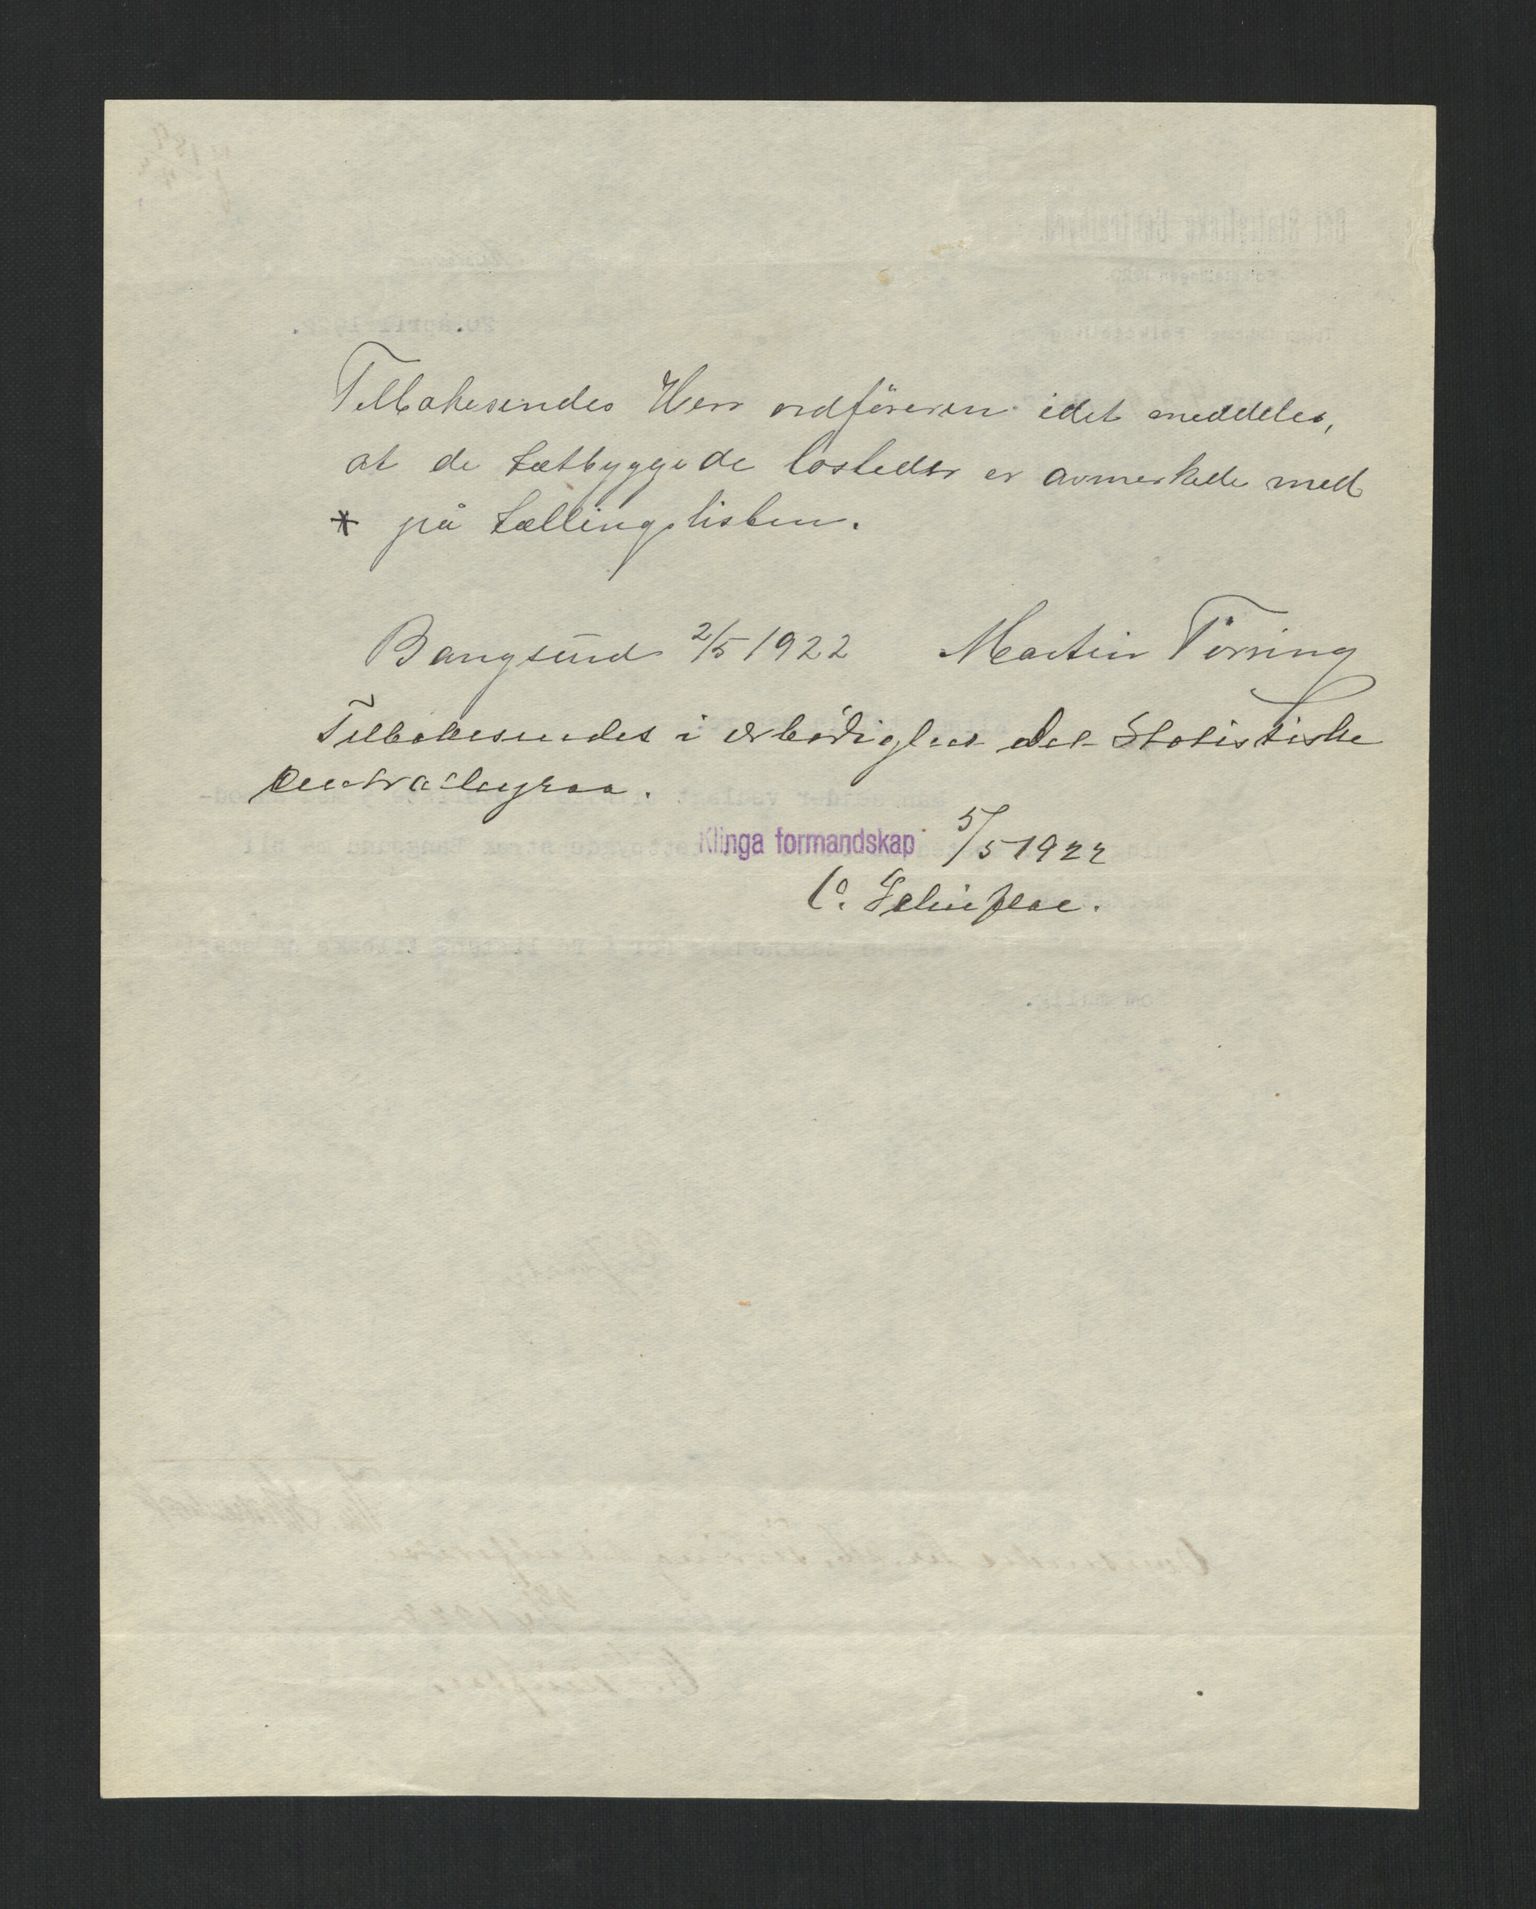 Tilbakesendes Herr ordföreren idet meddeles,
at de tætbyggede bosteder er avmerkede med
* på tællingslisten.
Bangsund 2/5 1922 Martin Törring
Tilbakesendes i ærbødighet det Statistiske
Centralbyraa.
Klinga formandskap 5/5 1922